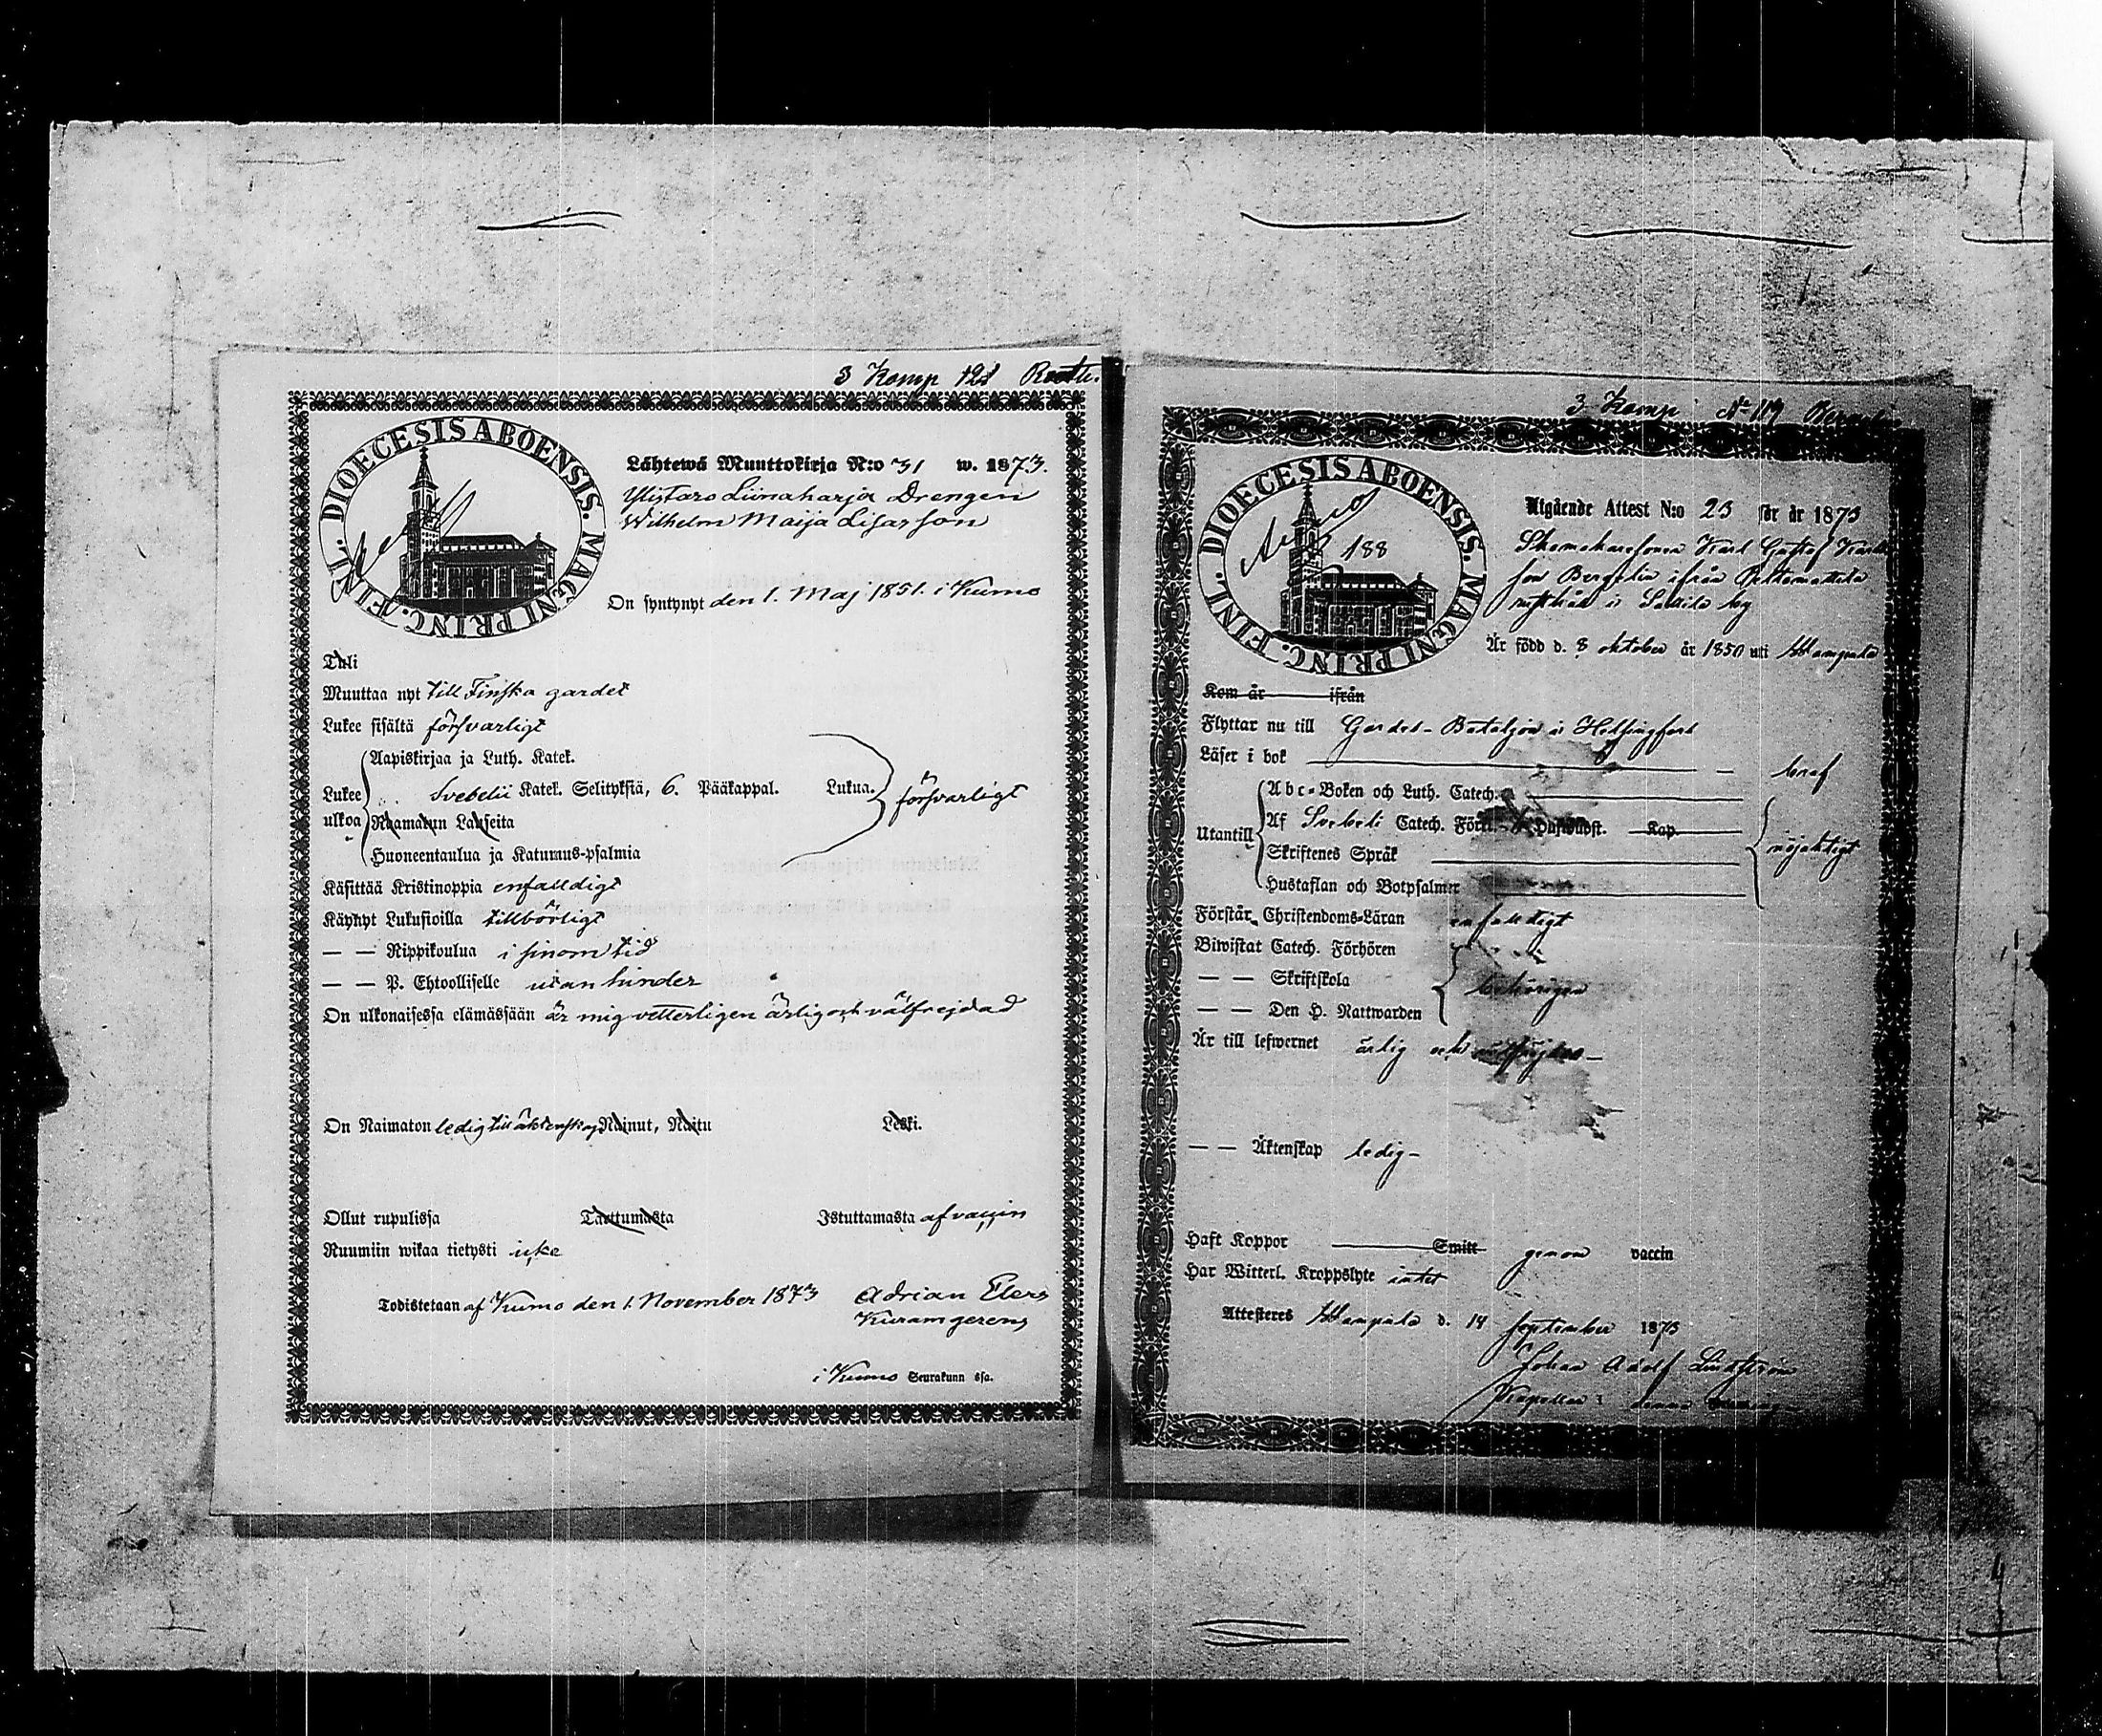 3 Komp 121
DIOECESIS ABOENSIS. MAGNI PRINC. FINL.
Lähtewä Muuttokirja N:o 31 w. 1873.
Ylistaro Liinaharja Drengen
Wilhelm Maija Lisasson
On syntynyt den 1. Maj 1851. i Kumo
Tuli
Muuttaa nyt till Finska gardet
Lukee sisältä försvarligt
Aapiskirjaa ja Luth. Katek.
Lukee Svebelii Katek. Selityksiä, 6. Pääkappal. Lukua. försvarligt
ulkoa Raamatun Lauseita
Huoneentaulua ja Katumus-psalmia
Käsittää Kristinoppia enfaldigt
Käynyt Lukusioilla tillbörligt
— — Rippikoulua i sinom tid
— — P. Ehtoolliselle utan hinder
On ulkonaisessa elämässään är mig vetterligen ärlig och välfrejdad
On Naimaton ledig till äktenskap Nainut, Naitu Leski.
Ollut rupulissa Tarttumasta Istuttamasta af vaccin
Ruumiin wikaa tietysti icke
Todistetaan af Kumo den 1. November 1873 Adrian Elers
Kuramgerens
i Kumo Seurakunn ssa.
3 Komp No 119
DIOECESIS ABOENSIS. MAGNI PRINC. FINL.
188
Utgående Attest N:o 23 för år 1873
Skomakaresonen Karl Gustaf Karls
son Bergelin ifrån
i by
Är född d. 8 oktober år 1850 uti Hvampula
Kom år ifrån
Flyttar nu till Gardes-Bataljon i Helsingfors
Läser i bok braf
Abc-Boken och Luth. Catech.
Utantill Af Svebeli Catech. Förkl. Hufwudst. Kap. nöjaktigt
Skriftenes Språk
Hustaflan och Botpsalmer
Förstår Christendoms-Läran enfaldigt
Biwistat Catech. Förhören
— — Skriftskola behörigen
— — Den H. Nattwarden
Är till lefwernet ärlig och
— — Äktenskap ledig
Haft Koppor Smitt genom vaccin
Har Witterl. Kroppslyte intet
Attesteres Hvampula d. 14 September 1873
Johan Adolf Lindström